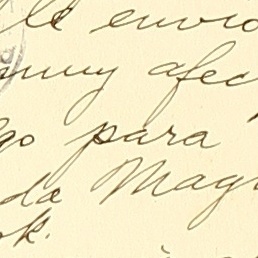 le envio
muy afec
go para
da Mag
ok.